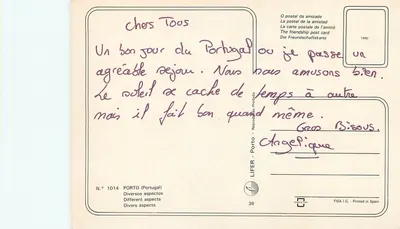 chers Tous
Un bonjour du Portugal ou je passe un
agréable sejour. Nous nous amusons bien.
Le soleil se cache de temps à autre
mais il fait bon quand même.
Gros Bisous.
Angélique
O postal da amizade
La postal de la amistad
La carte postale de l'amitié
The friendship post card
Die Freundschaftskarte
N.º 1014 PORTO (Portugal)
Diversos aspectos
Different aspects
Divers aspects
39
LIFER - Porto
FISA I.G. - Printed in Spain